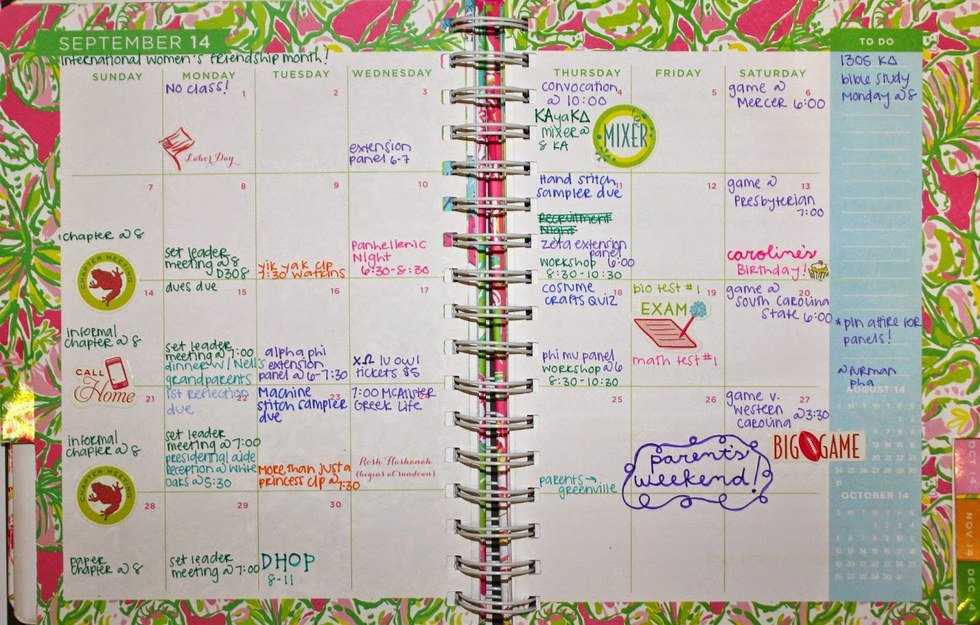 SEPTEMBER 14
International women's friendship month!
SUNDAY
MONDAY
TUESDAY
WEDNESDAY
THURSDAY
FRIDAY
SATURDAY
TO DO
1
No class!
Labor Day
2
3
extension
panel 6-7
4
convocation
@ 10:00
KAyaKΔ
mixer @
8 KA
MIXER
5
6
game @
Mercer 6:00
1305 KΔ
bible study
Monday @ 8
7
chapter @ 8
CHAPTER MEETING
8
set leader
meeting @ 8
D308
9
yik yak clp
7:30 watkins
10
Panhellenic
Night
6:30-8:30
11
Hand stitch
sampler due
Recruitment
Night
zeta extension
panel
workshop 6:00
8:30-10:30
12
13
game @
Presbyterian
7:00
caroline's
Birthday!
14
informal
chapter @ 8
CALL
Home
15
dues due
set leader
meeting @ 7:00
dinner w/ Nell's
grandparents
16
alpha phi
extension
panel @ 6-7:30
17
XΩ luow!
tickets $5
18
costume
crafts quiz
phi mu panel
workshop @ 6
8:30-10:30
19
bio test #1
EXAM
math test #1
20
game @
South Carolina
State 6:00
* pin attire for
panels!
21
informal
chapter @ 8
CHAPTER MEETING
22
1st reflection
due
set leader
meeting @ 7:00
presidential aide
reception @ White
oaks @ 5:30
23
Machine
stitch sampler
due
More than just a
princess clp @ 7:30
24
7:00 McAlister
Greek Life
Rosh Hashanah
(begins at sundown)
25
parents →
greenville
26
parent's
weekend!
27
game v.
western
Carolina @ 3:30
BIG GAME
@ furman
pha
AUGUST 14
OCTOBER 14
28
paper
chapter @ 8
29
set leader
meeting @ 7:00
30
DHOP
8-11
OCT
NOV
DEC